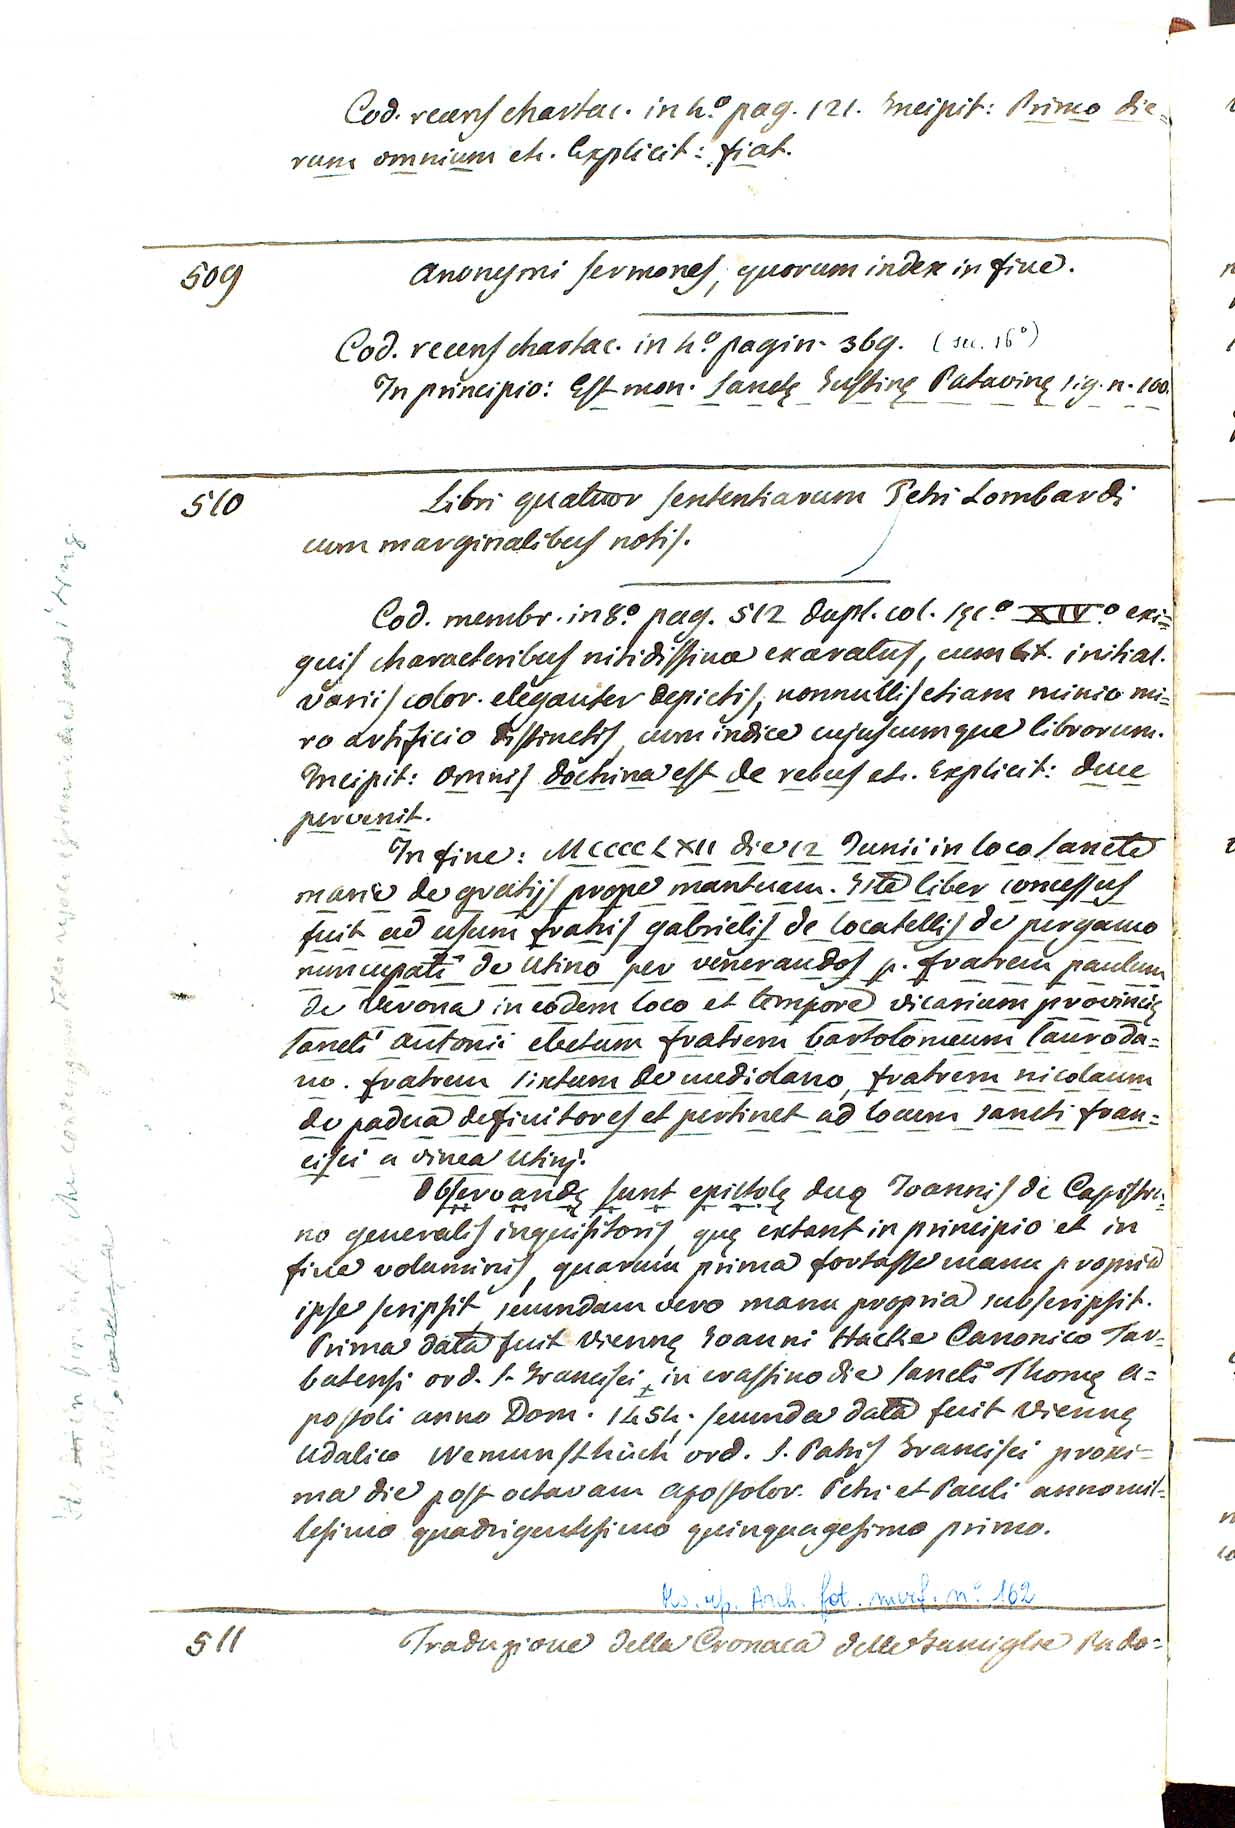 Cod. recens chartac. in 4.º pag. 121. Incipit: Primo die=
rum omnium etc. Explicit: fiat.
509
Anonymi sermones, quorum index in fine.
Cod. recens chartac. in 4.º pagin. 369. (sec. 16º)
In principio: Est mon. Sanctę Justinę Patavinę sig. n. 160.
510
Libri quatuor sententiarum Petri Lombardi
cum marginalibus notis.
Cod. membr. in 8.º pag. 512 dupl. col. sęc.º XIV.º exi=
guis characteribus nitidissime exaratus, cum lit. initial.
variis color. eleganter depictis, nonnullis etiam minio mi=
ro artificio distinctis, cum indice cujuscumque librorum.
Incipit: Omnis doctrina est de rebus etc. Explicit: duce
pervenit.
In fine: MCCCCLXII die 12 Junii in loco sancte
marie de gratiis prope mantuam. Iste liber concessus
fuit ad usum fratris gabrielis de locatellis de pergamo
nuncupati de Utino per venerandos p. fratrem paulum
de Verona in eodem loco et tempore vicarium provincię
sancti antonii electum fratrem bartolomeum lauroda=
no. fratrem sixtum de mediolano, fratrem nicolaum
de padua definitores et pertinet ad locum sancti fran=
cisci a vinea Utini.
Observandę sunt epistolę duę Joannis de Capistra=
no generalis inquisitoris, quę extant in principio et in
fine voluminis, quarum prima fortasse manu propria
ipse scripsit, secundam vero manu propria subscripsit.
Prima data fuit Viennę Joanni Hacke Canonico Tar=
batensi ord. S. Francisci, in crastino die sancti Thomę A=
postoli anno Dom. 1454. secunda data fuit Viennę
Udalico Wemunsthüch ord. S. Patris Francisci proxi=
ma die post octavam apostolor. Petri et Pauli anno mil=
lesimo quadrigentesimo quinquagesimo primo.
Arch. fot. n.º 162
511
Traduzione della Cronaca delle Famiglie Pado=